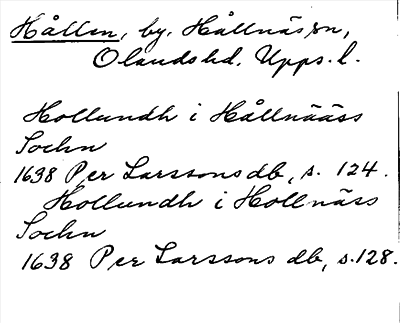 Hållen, by, Hållnäs sn,
Olands hd, Upps. l.
Hollundh i Hållnääss
Sochn
1638 Per Larssons db, s. 124.
Hollundh i Hollnäss
Sochn
1638 Per Larssons db, s. 128.